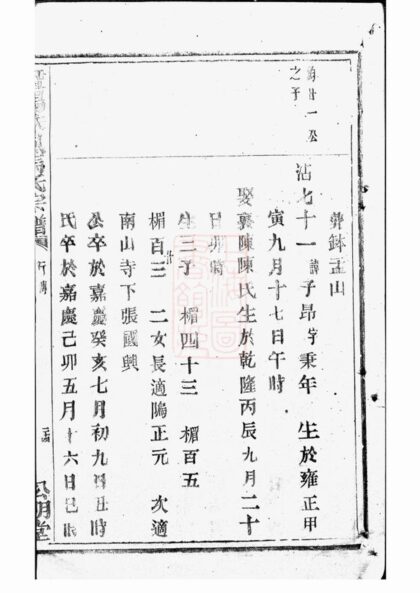 葬鉢盂山
廿一公
之子
沾七十一 諱子昂字秉年 生於雍正甲
寅九月十七日午時
娶襄陳陳氏生於乾隆丙辰九月二十
日卯時
生三子 楣四十三 楣百五
楣百三 二女長適隝正元 次適
南山寺下張國興
公卒於嘉慶癸亥七月初九日丑時
氏卒於嘉慶己卯五月十六日巳時
氏宗譜
行傳